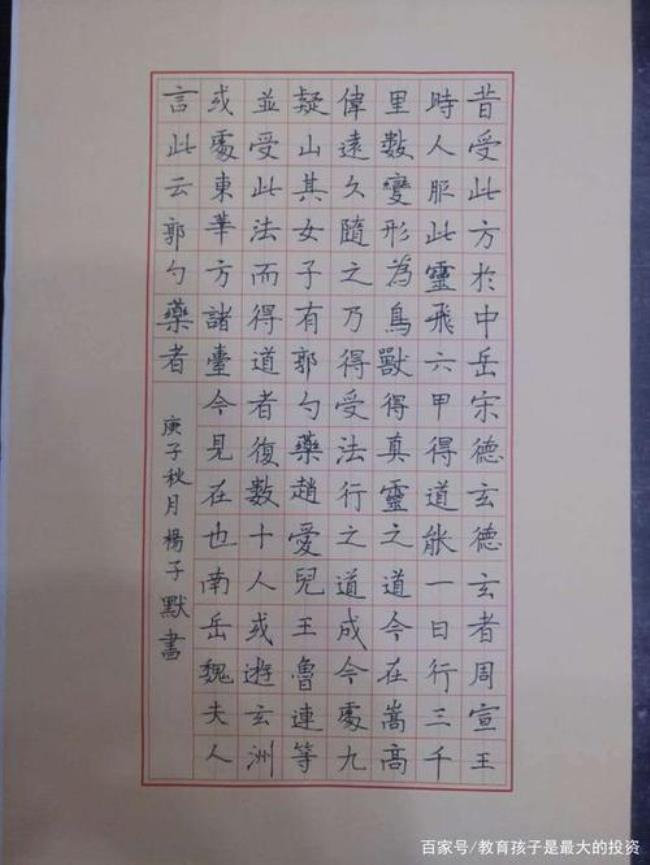 昔受此方於中岳宋德玄德玄者周宣王
時人服此靈飛六甲得道能一日行三千
里數變形為鳥獸得真靈之道今在嵩高
偉遠久隨之乃得受法行之道成今處九
疑山其女子有郭勺藥趙愛兒王魯連等
並受此法而得道者復數十人或遊玄洲
或處東華方諸臺今見在也南岳魏夫人
言此云郭勺藥者
庚子秋月楊子默書
百家号/教育孩子是最大的投资